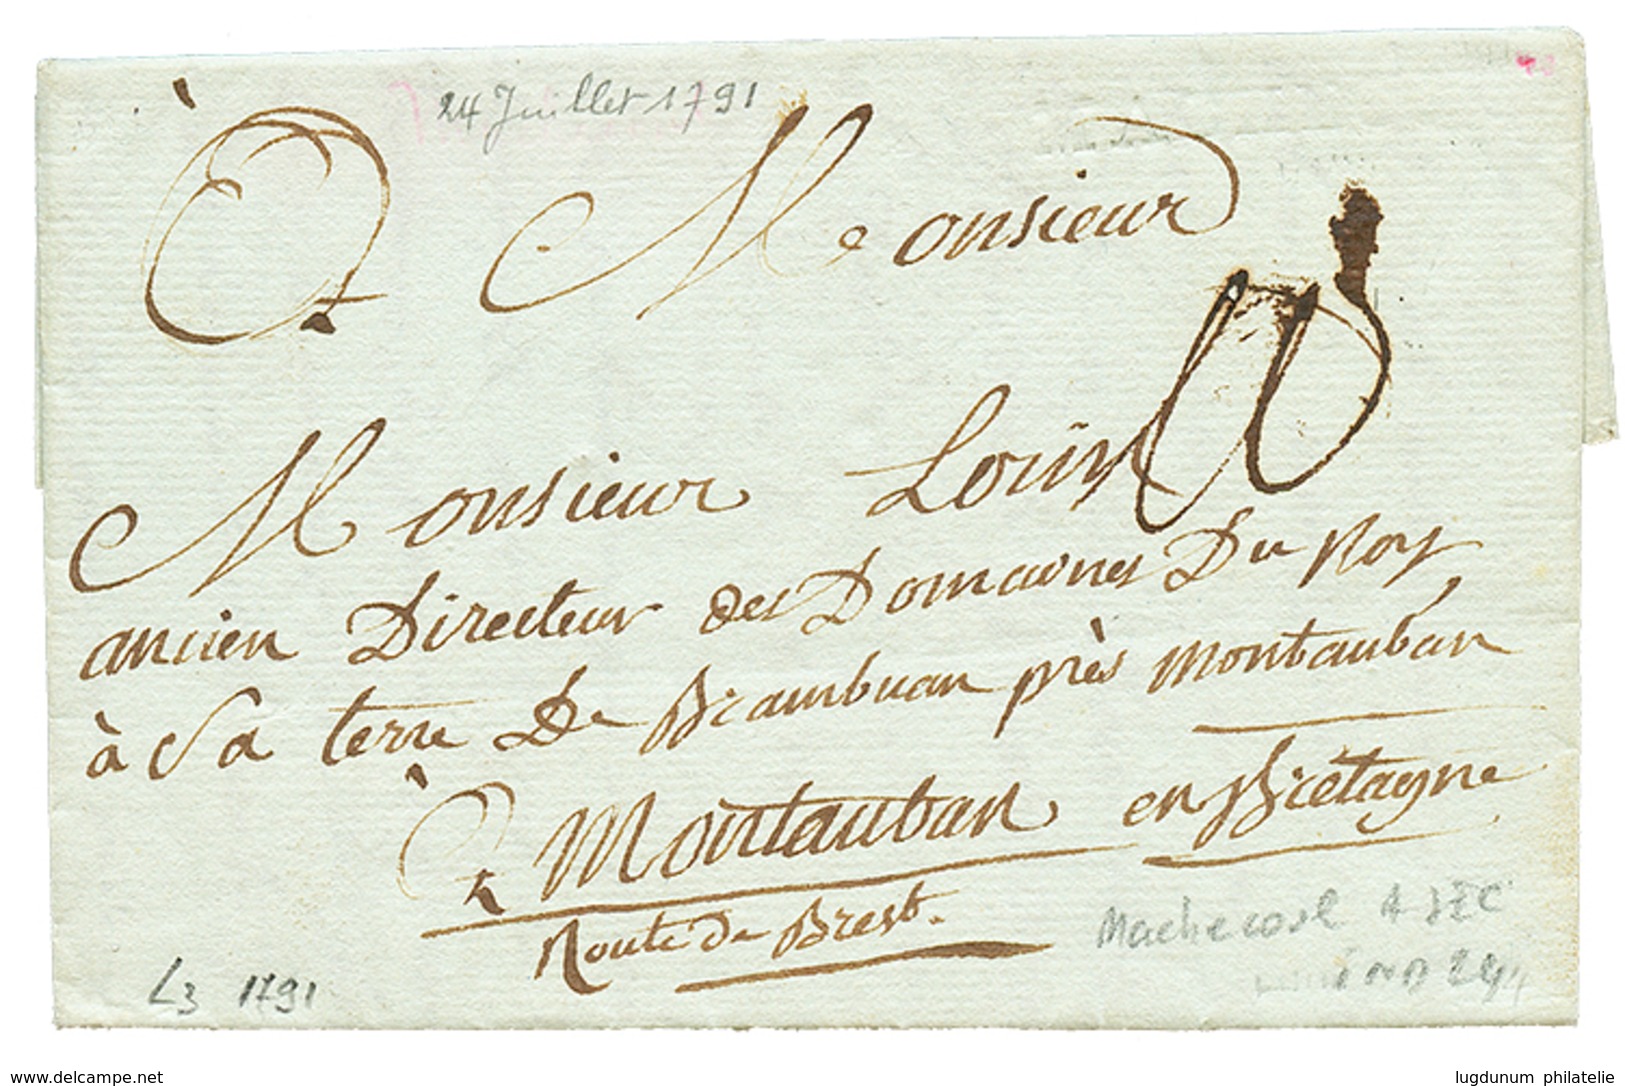 24 Juillet 1791
A Monsieur
Monsieur
ancien Directeur des Domaines Du Roy
à Sa terre De près Montauban
A Montauban en Brétagne
Route de Brest.
L3 1791
Machecoul
IND 24
www.delcampe.net
lugdunum philatelie